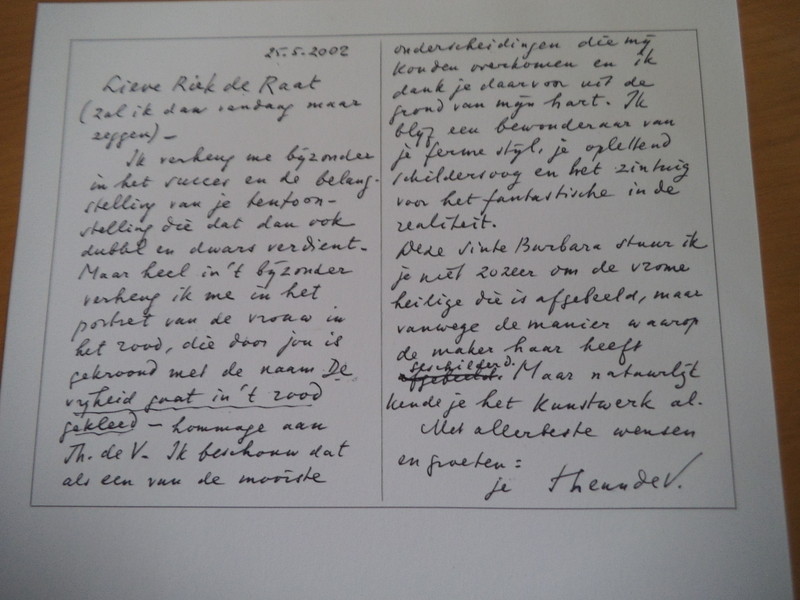 25.5.2002
Lieve Riek de Raat
(zal ik dan vandaag maar
zeggen) —
Ik verheug me bijzonder
in het succes en de belang-
stelling van je tentoon-
stelling die dat dan ook
dubbel en dwars verdient.
Maar heel in 't bijzonder
verheug ik me in het
portret van de vrouw in
het rood, die door jou is
gekroond met de naam De
vrijheid gaat in 't rood
gekleed — hommage aan
Th. de V. Ik beschouw dat
als een van de mooiste
onderscheidingen die mij
konden overkomen en ik
dank je daarvoor uit de
grond van mijn hart. Ik
blijf een bewonderaar van
je ferme stijl, je oplettend
schildersoog en het zintuig
voor het fantastische in de
realiteit.
Deze Sinte Barbara stuur ik
je niet zozeer om de vrome
heilige die is afgebeeld, maar
vanwege de manier waarop
de maker haar heeft
geschilderd.
afgebeeld. Maar natuurlijk
kende je het kunstwerk al.
Met allerbeste wensen
en groeten:
je Theun de V.